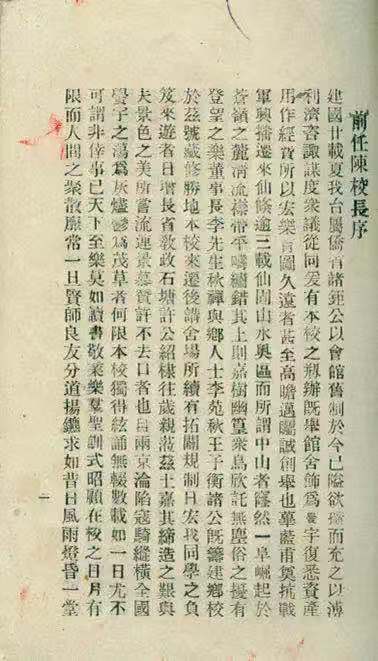 前任陳校長序
建國廿載夏我台屬僑省諸鉅公以會館舊制於今已隘欲擴而充之以溥
利濟咨諏謀度衆議從同爰有本校之剏辦既舉館舍飾為黌宇復悉資產
用作經資所以宏樂育圖久遠者甚至高瞻邁矚誠創舉也甫奠抗戰
軍興播遷來仙倐逾三載仙固山水奧區而所謂中山者窿然一阜崛起於
蒼嶺之麓淸流襟帶平疇繡錯其上則嘉樹幽篁衆鳥欣託無塵俗之擾有
登望之樂董事長李先生秋禪與鄉人士李苑秋王子衡諸公既籌建鄉校
於茲號藏修勝地本校來遷後講舍場所續有拓闢規制日宏我同學之負
笈來遊者日增長省敎政石塘許公紹棣往歲親蒞茲土嘉其締造之艱與
夫景色之美所嘗流連景慕贊許不去口者也自兩京淪陷寇騎縱橫全國
黌宇之蕩為灰燼鬱為茂草者何限本校獨得絃誦無輟數載如一日尤不
可謂非倖事已天下至樂莫如讀書敬業樂羣聖訓式昭顧在校之日月有
限而人間之聚散靡常一旦賢師良友分道揚鑣求如昔日風雨燈昏一堂
一